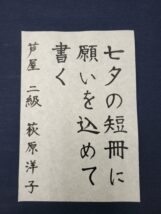 七夕の短冊に
願いを込めて
書く
芦屋 二級 萩原洋子